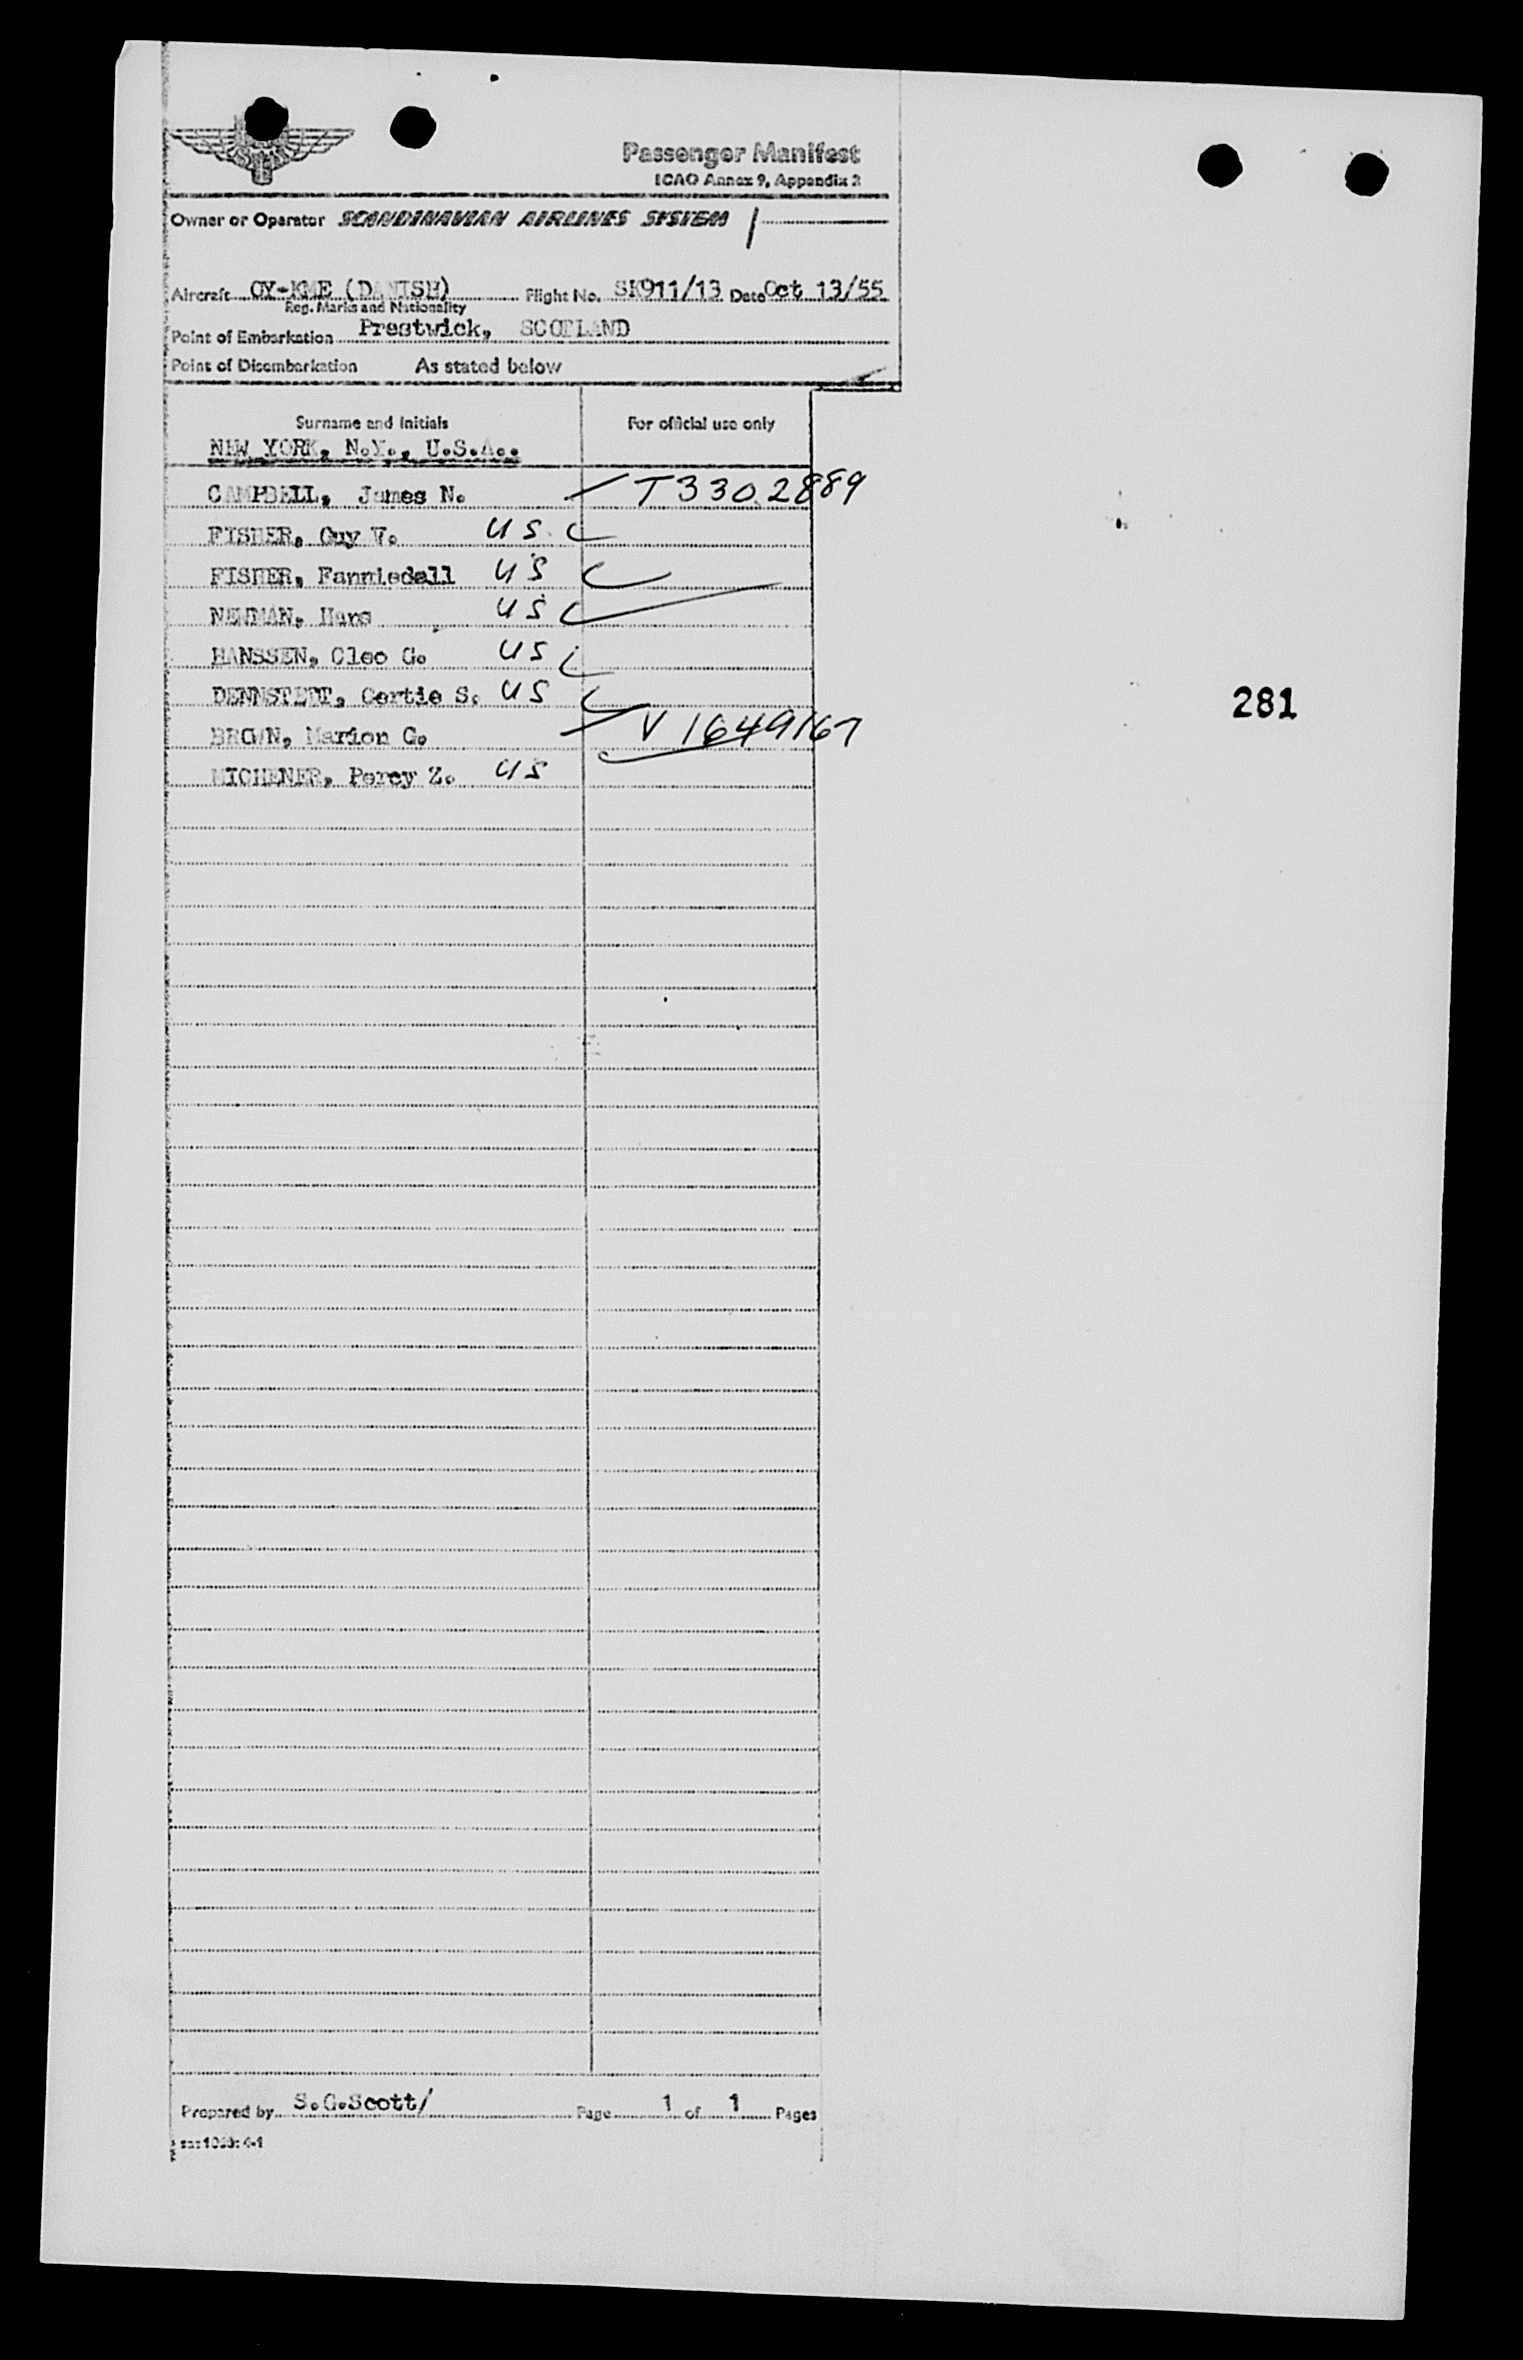 SAS
Passenger Manifest
ICAO Annex 9, Appendix 2
Owner or Operator SCANDINAVIAN AIRLINES SYSTEM /
Aircraft OY-KME (DANISH) Flight No. SK911/13 Date Oct 13/55
Reg. Marks and Nationality
Point of Embarkation Prestwick, SCOTLAND
Point of Disembarkation As stated below
Surname and Initials For official use only
NEW YORK, N.Y., U.S.A..
CAMPBELL, James N. T3302889
FISHER, Guy V. US
FISHER, Fanniedell US
NEUMAN, Hans US
HANSSEN, Cleo G. US
DENNSTEDT, Gertie S. US
281
BROWN, Marion G. V1649167
MICHENER, Percy Z. US
Prepared by S.G.Scott/ Page 1 of 1 Pages